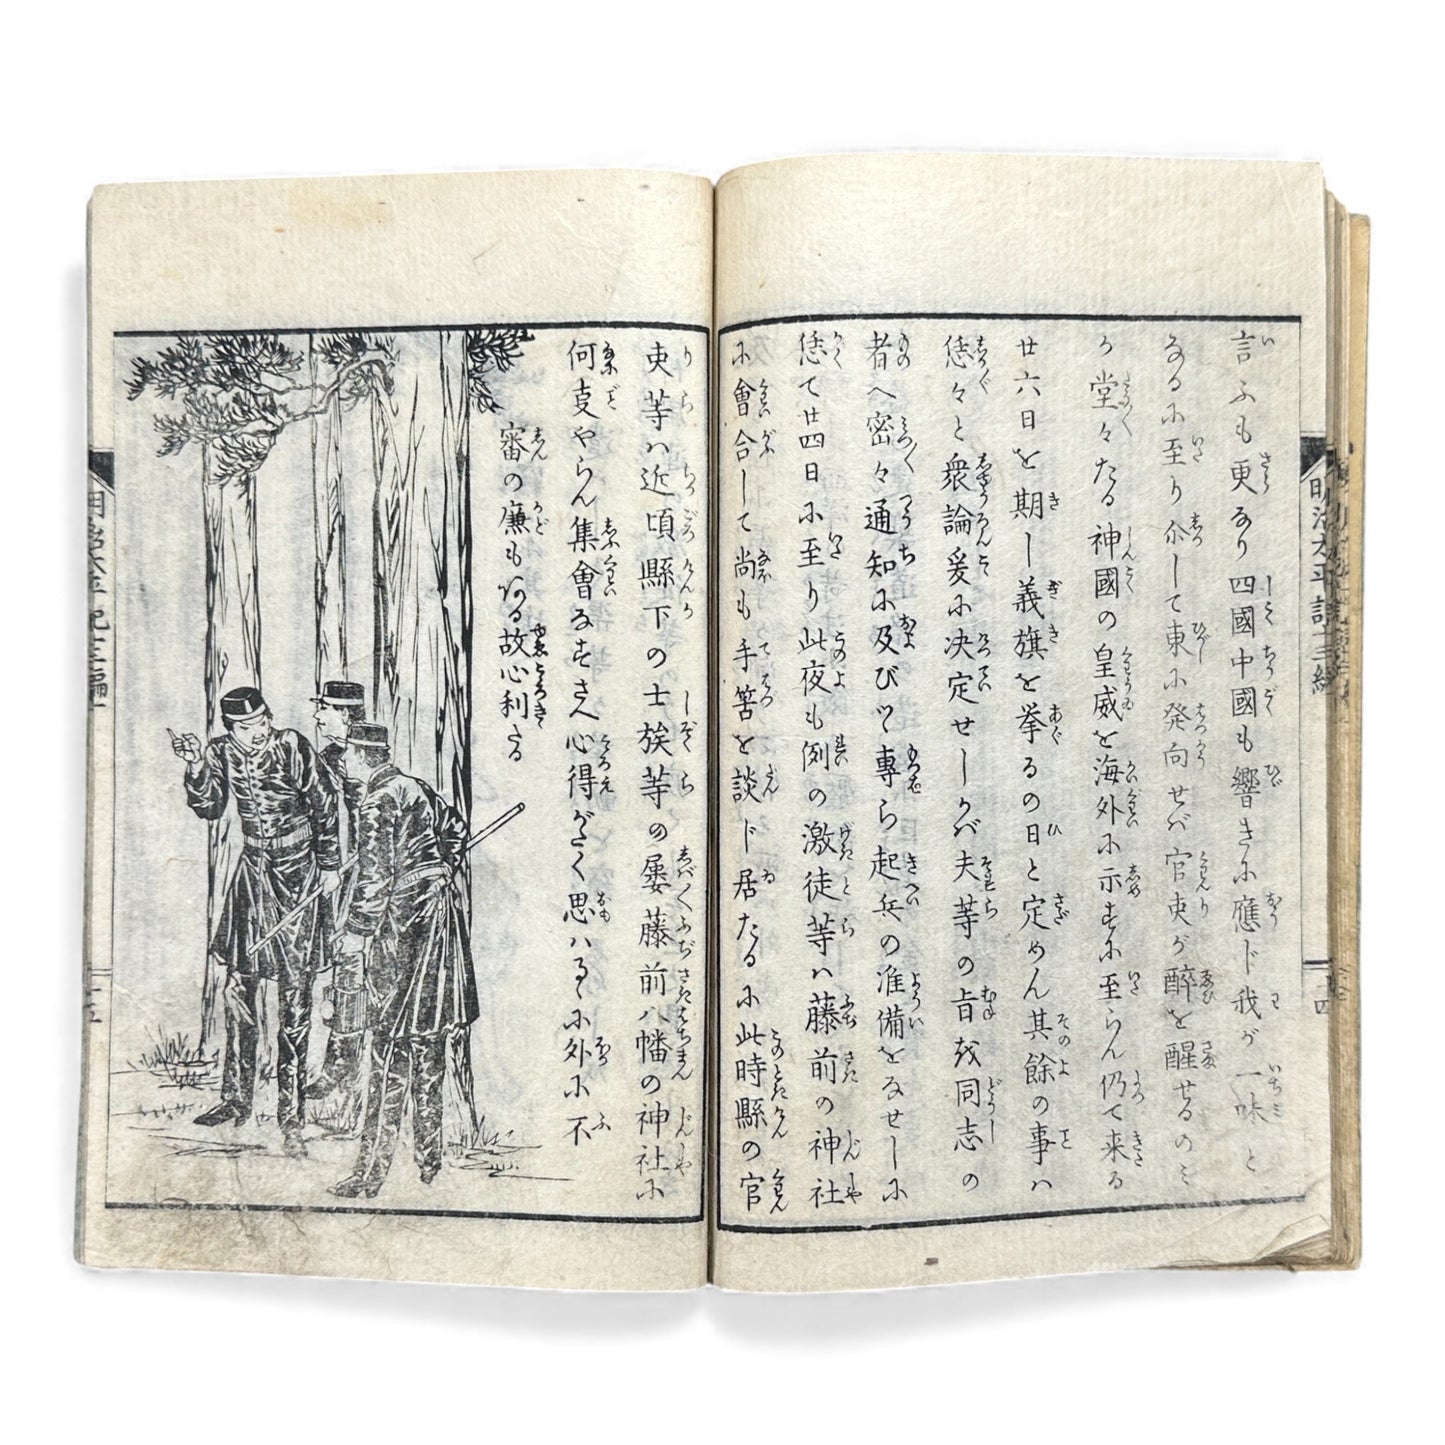 言ふも更なり四國中國も響きに應ド我が一味と
なるに至り尒して東に発向せバ官吏が醉を醒せるのミ
か堂々たる神國の皇威を海外に示すに至らん仍て来る
廿六日を期し義旗を挙るの日と定めん其餘の事ハ
恁々と衆論爰に决定せしかバ夫等の旨を同志の
者へ密々通知に及びつ專ら起兵の准備をなせしに
恁て廿四日に至り此夜も例の激徒等ハ藤前の神社
に會合して尚も手筈を談ド居たるに此時縣の官
吏等ハ近頃縣下の士族等の屡藤前八幡の神社に
何亊やらん集會なすさへ心得がたく思ハるゝに外に不
審の廉もある故心利たる
明治太平記十三編